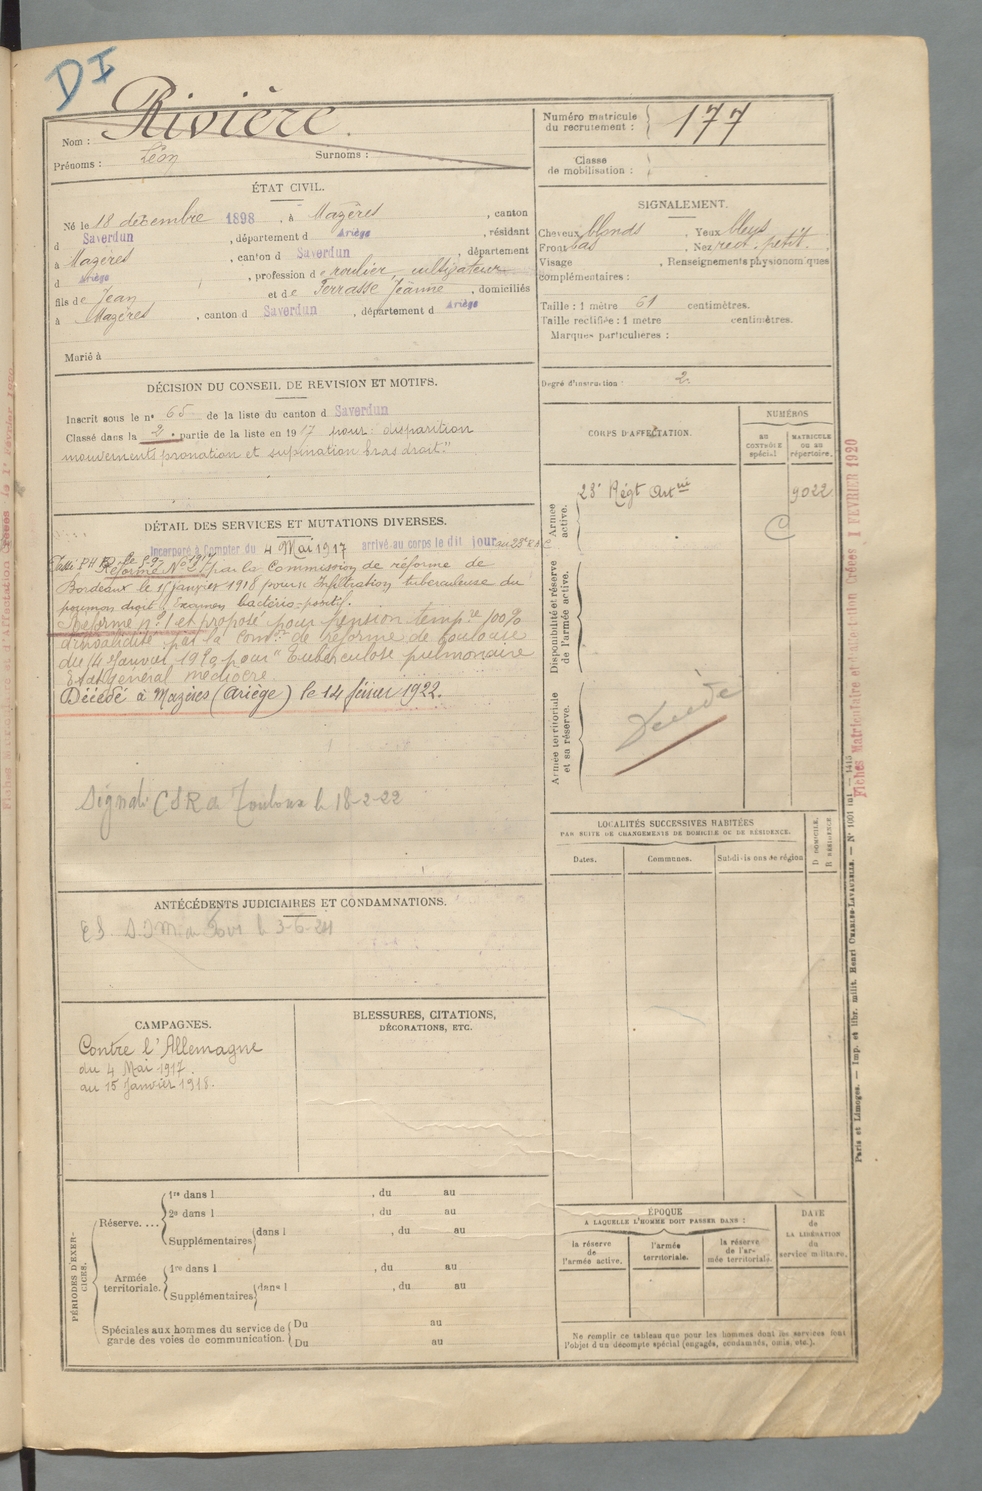 DI
Nom : Rivière.
Prénoms : Léon Surnoms :
ÉTAT CIVIL.
Né le 18 décembre 1898, à Mazères, canton
d Saverdun, département d Ariège, résidant
à Mazères, canton d Saverdun, département
d Ariège, profession de roulier, cultivateur
fils de Jean et de Terrasse Jeanne, domiciliés
à Mazères, canton d Saverdun, département d Ariège
Marié à
DÉCISION DU CONSEIL DE REVISION ET MOTIFS.
Inscrit sous le n° 65 de la liste du canton d Saverdun
Classé dans la 2e partie de la liste en 1917 pour : disparition
mouvements pronation et supination bras droit."
DÉTAIL DES SERVICES ET MUTATIONS DIVERSES.
Incorporé à compter du 4 Mai 1917 arrivé au corps le dit jour au 23e R.A.C
Réformé N° 2 par la Commission de réforme de
Bordeaux le 15 janvier 1918 pour Infiltration tuberculeuse du
poumon droit. Examen bactério-positif.
Réformé n° 1 et proposé pour pension tempre 100%
d'invalidité par la Comon de réforme de Toulouse
du 14 Janvier 1920 pour "Tuberculose pulmonaire
Etat général médiocre.
Décédé à Mazères (Ariège) le 14 février 1922.
Signalé CSR de Toulouse le 18-2-22
ANTÉCÉDENTS JUDICIAIRES ET CONDAMNATIONS.
le 3-6-24
CAMPAGNES.
Contre l'Allemagne
du 4 Mai 1917.
au 15 Janvier 1918.
BLESSURES, CITATIONS,
DÉCORATIONS, ETC.
PÉRIODES D'EXERCICES.
Réserve....
1re dans l , du au
2e dans l , du au
Supplémentaires dans l , du au
Armée territoriale.
1re dans l , du au
Supplémentaires dans l , du au
Spéciales aux hommes du service de garde des voies de communication.
Du au
Du au
Numéro matricule du recrutement : 177
Classe de mobilisation :
SIGNALEMENT.
Cheveux blonds. Yeux bleus
Front bas, Nez rect. petit.
Visage , Renseignements physionomiques
complémentaires :
Taille : 1 mètre 61 centimètres.
Taille rectifiée : 1 mètre centimètres.
Marques particulières :
Degré d'instruction : 2
CORPS D'AFFECTATION.
NUMÉROS
au CONTRÔLE spécial
MATRICULE ou au répertoire.
Armée active.
23e Régt Artrie 9022
C
Disponibilité et réserve de l'armée active.
Armée territoriale et sa réserve.
Décédé
LOCALITÉS SUCCESSIVES HABITÉES
PAR SUITE DE CHANGEMENTS DE DOMICILE OU DE RÉSIDENCE.
Dates. Communes. Subdivisions de région
D DOMICILE.
R RÉSIDENCE
ÉPOQUE
A LAQUELLE L'HOMME DOIT PASSER DANS :
la réserve de l'armée active.
l'armée territoriale.
la réserve de l'armée territoriale.
DATE de LA LIBÉRATION du service militaire.
Ne remplir ce tableau que pour les hommes dont les services font
l'objet d'un décompte spécial (engagés, condamnés, omis, etc.).
Fiches Matriculaire et d'affectation Créées 1 FEVRIER 1920
Paris et Limoges. — Imp. et libr. milit. Henri CHARLES-LAVAUZELLE. — N° 1001